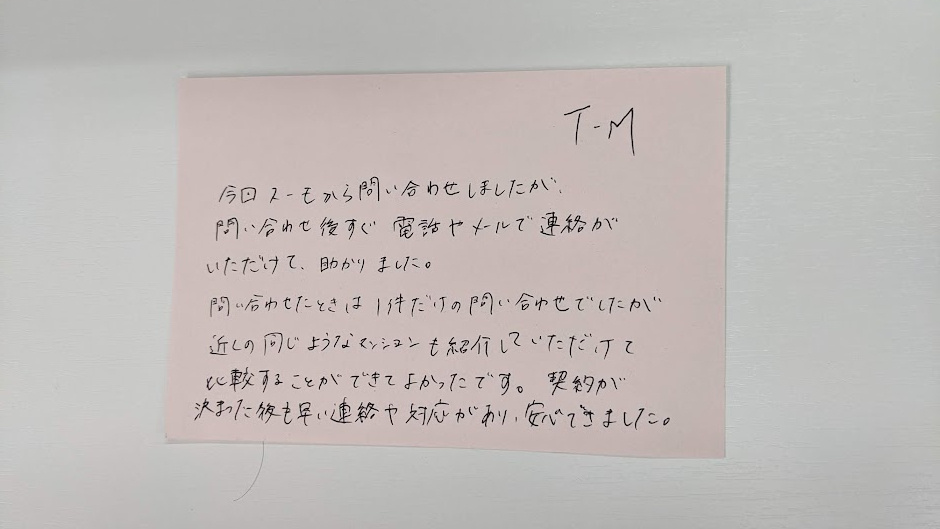 T-M
今回スーモから問い合わせしましたが、
問い合わせ後すぐ 電話やメールで連絡が
いただけて、助かりました。
問い合わせたときは1件だけの問い合わせでしたが
近くの同じようなマンションも紹介していただけて
比較することができてよかったです。契約が
決まった後も早い連絡や対応があり、安心できました。